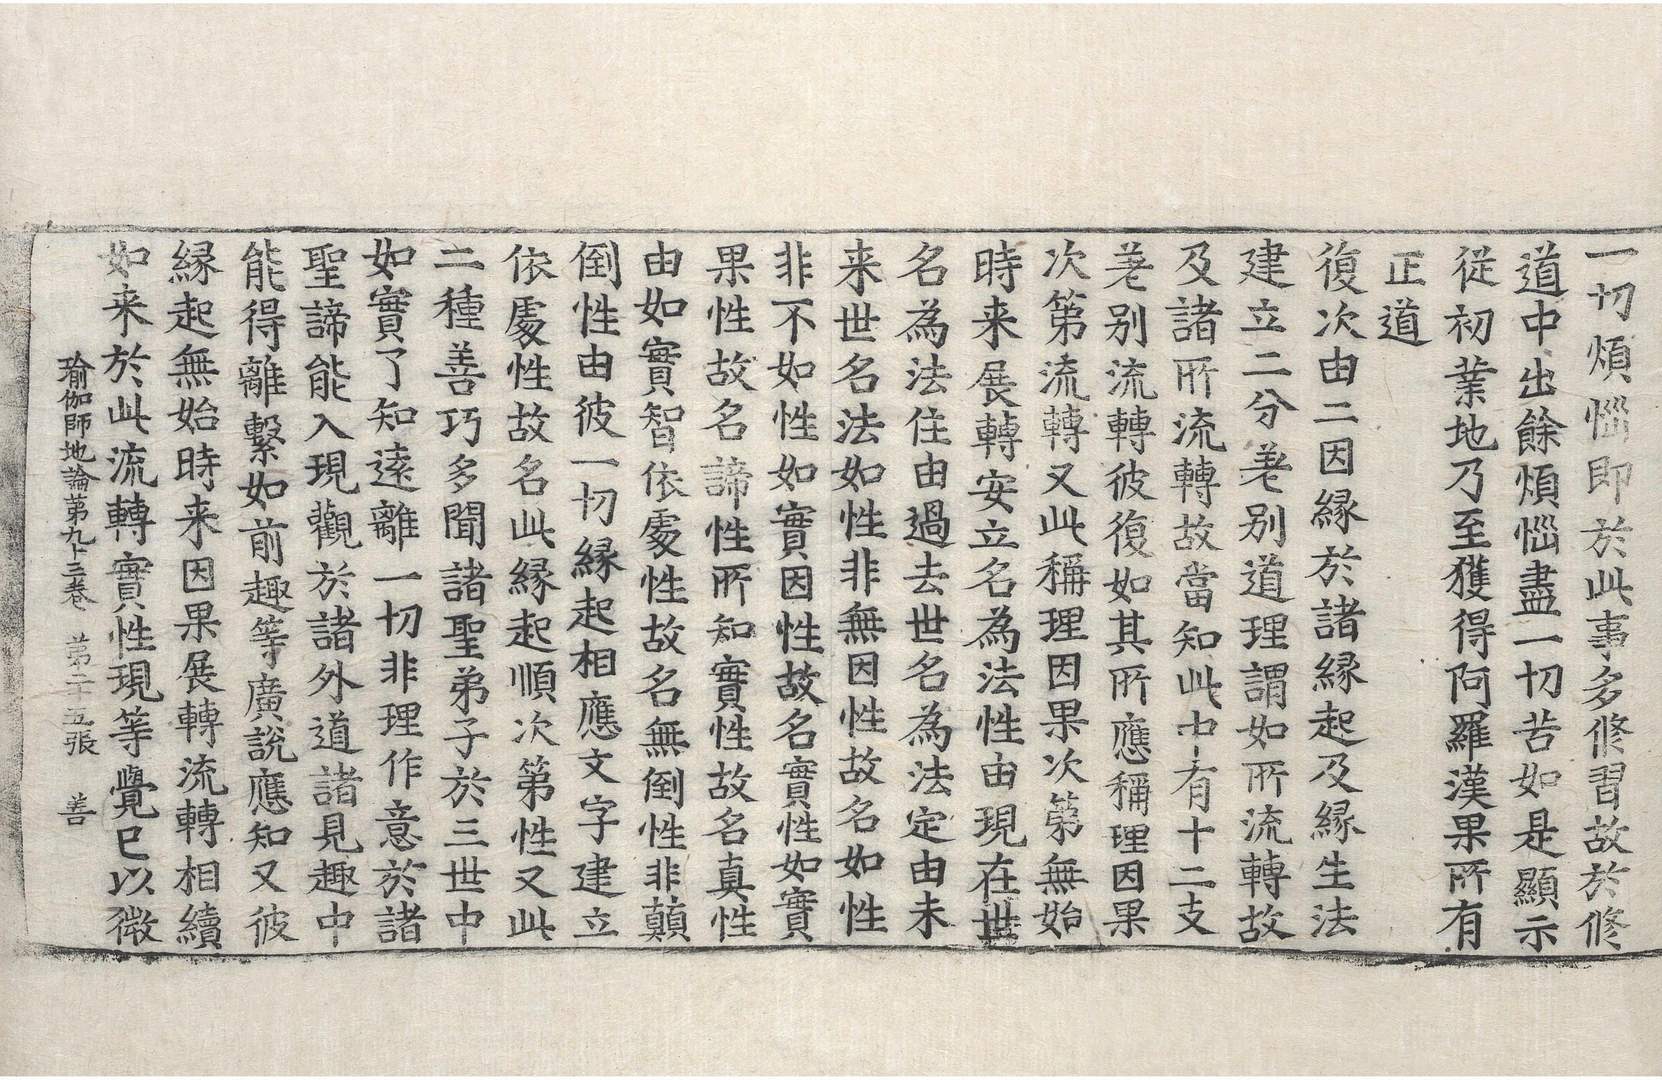 一切煩惱即於此事多修習故於修
道中出餘煩惱盡一切苦如是顯示
從初業地乃至獲得阿羅漢果所有
正道
復次由二因緣於諸緣起及緣生法
建立二分差別道理謂如所流轉故
及諸所流轉故當知此中有十二支
差別流轉彼復如其所應稱理因果
次第流轉又此稱理因果次第無始
時来展轉安立名為法性由現在世
名為法住由過去世名為法定由未
来世名法如性非無因性故名如性
非不如性如實因性故名實性如實
果性故名諦性所知實性故名真性
由如實智依處性故名無倒性非顛
倒性由彼一切緣起相應文字建立
依處性故名此緣起順次第性又此
二種善巧多聞諸聖弟子於三世中
如實了知遠離一切非理作意於諸
聖諦能入現觀於諸外道諸見趣中
能得離繫如前趣等廣說應知又彼
緣起無始時来因果展轉流轉相續
如来於此流轉實性現等覺已以微
瑜伽師地論第九十三卷 第二十五張 善